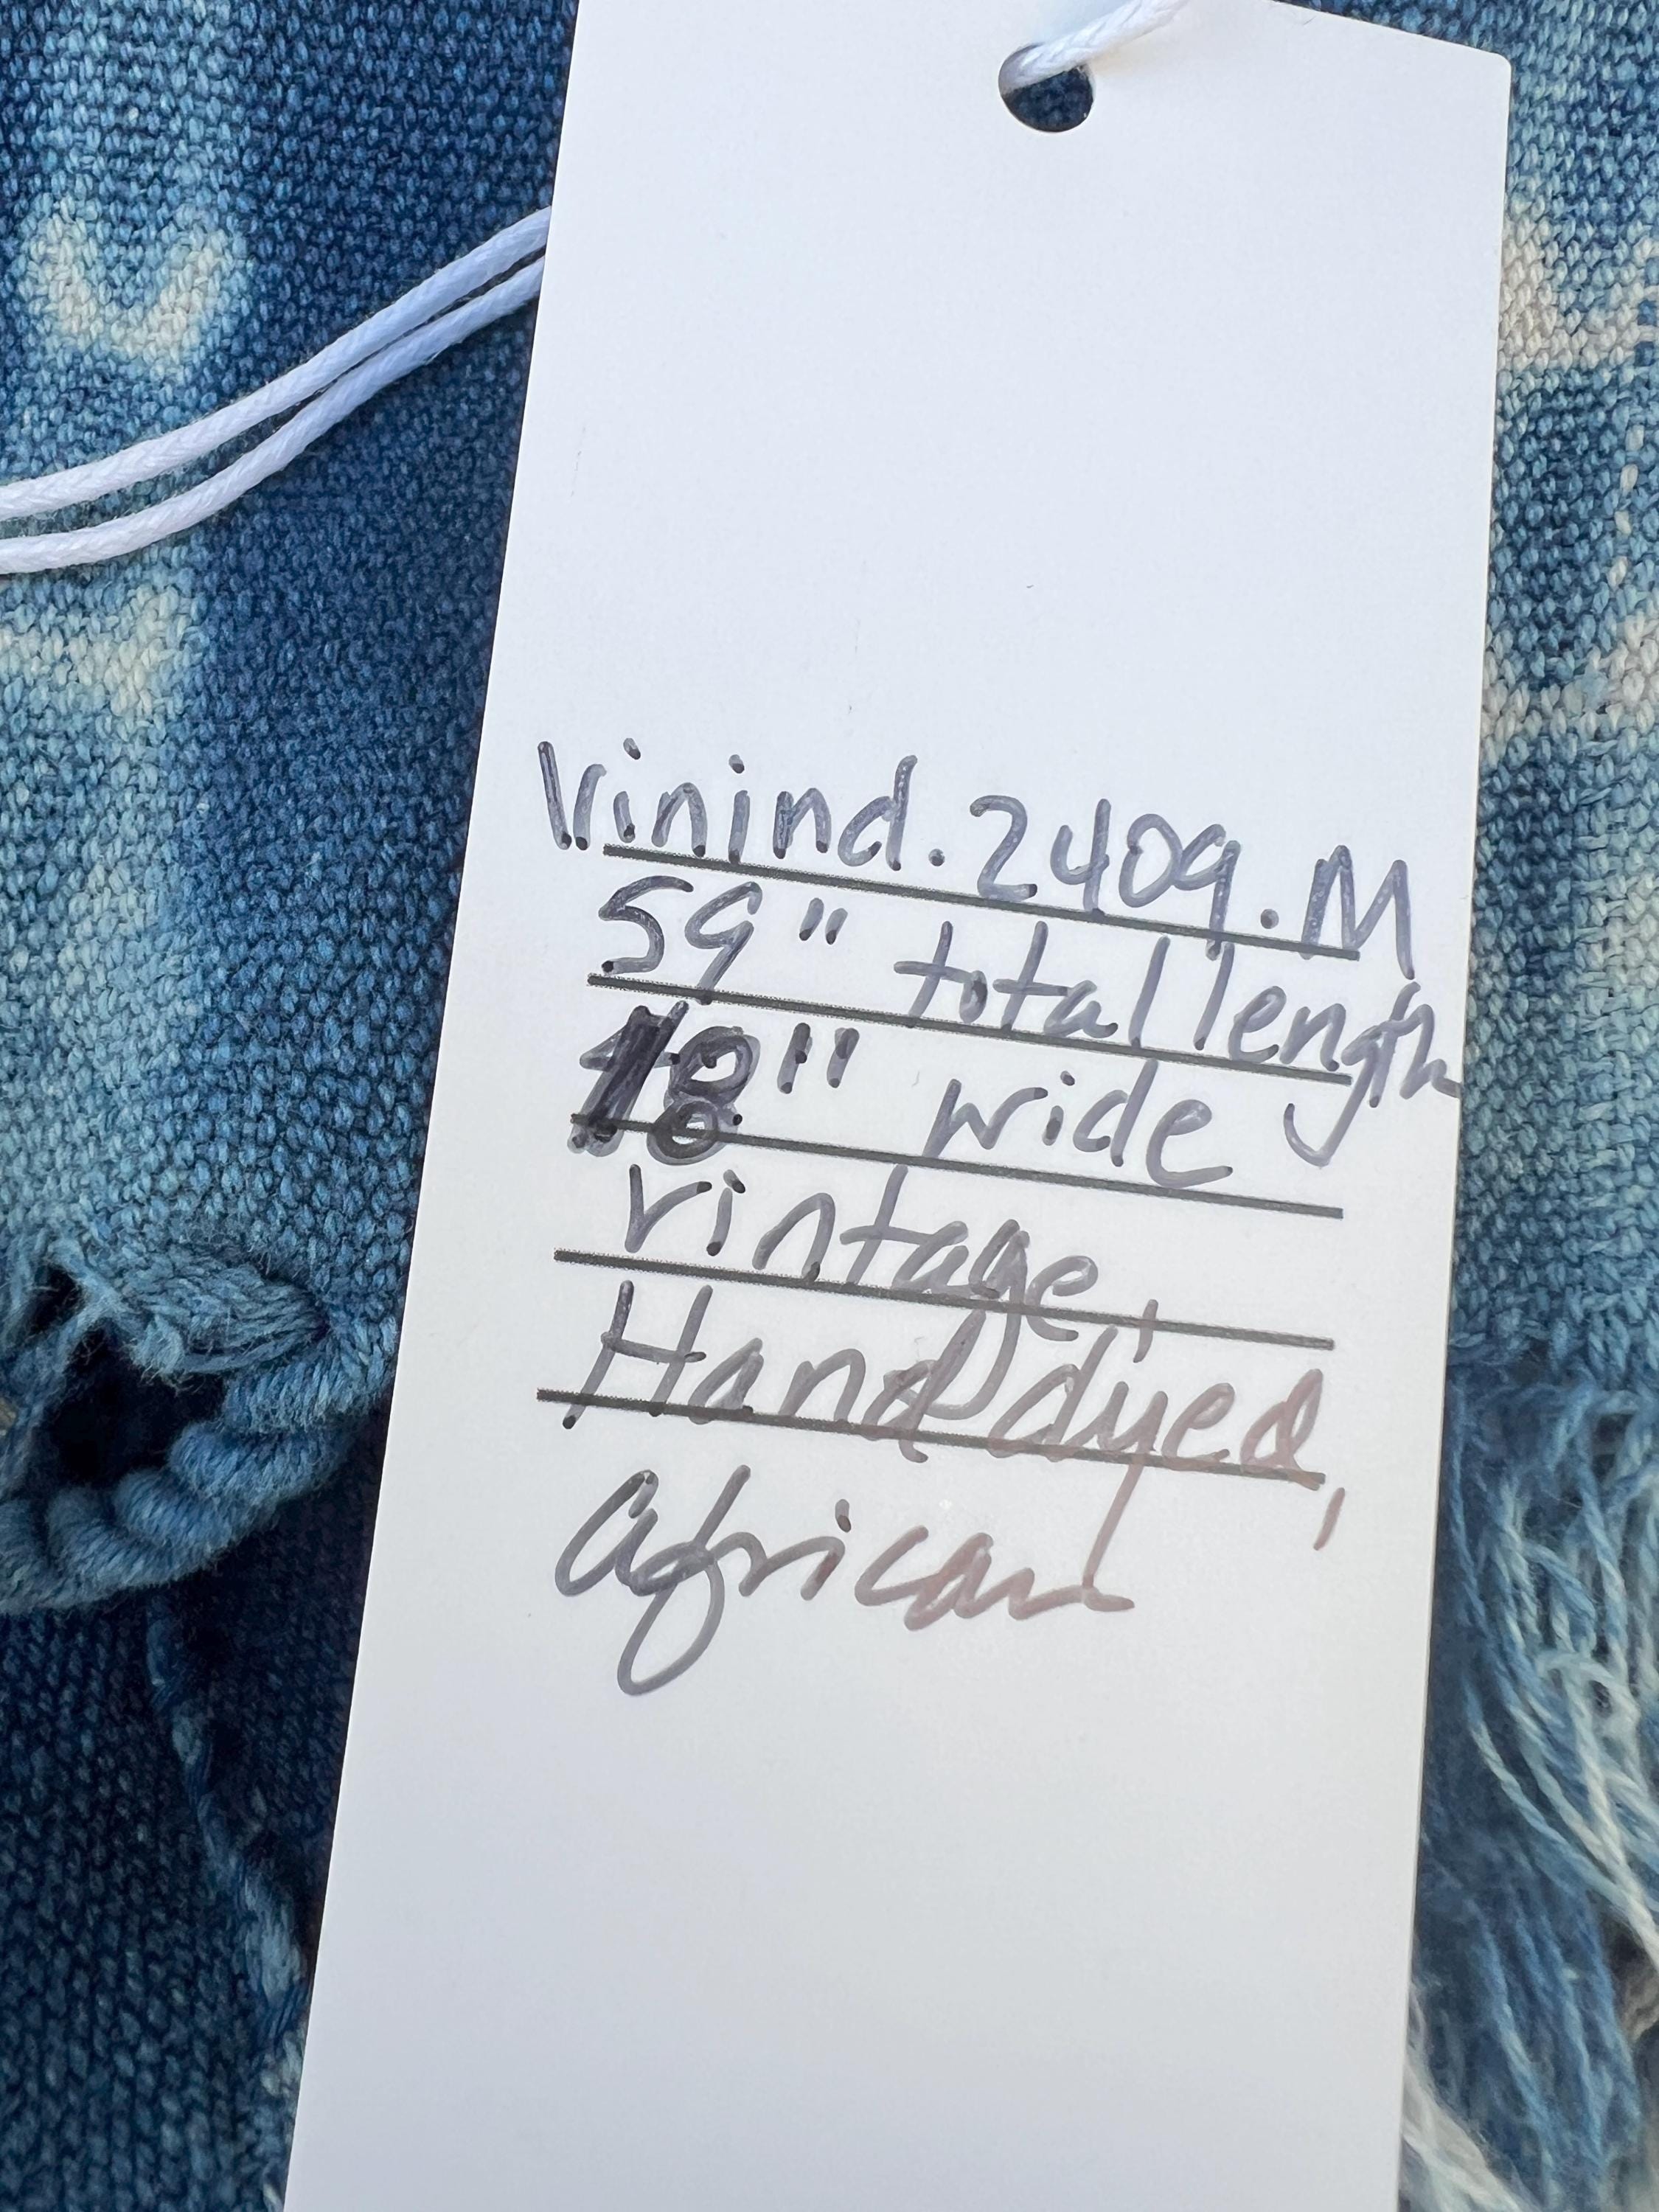 Vinind.2409.M
59" total length
18" wide
vintage,
Hand dyed,
african